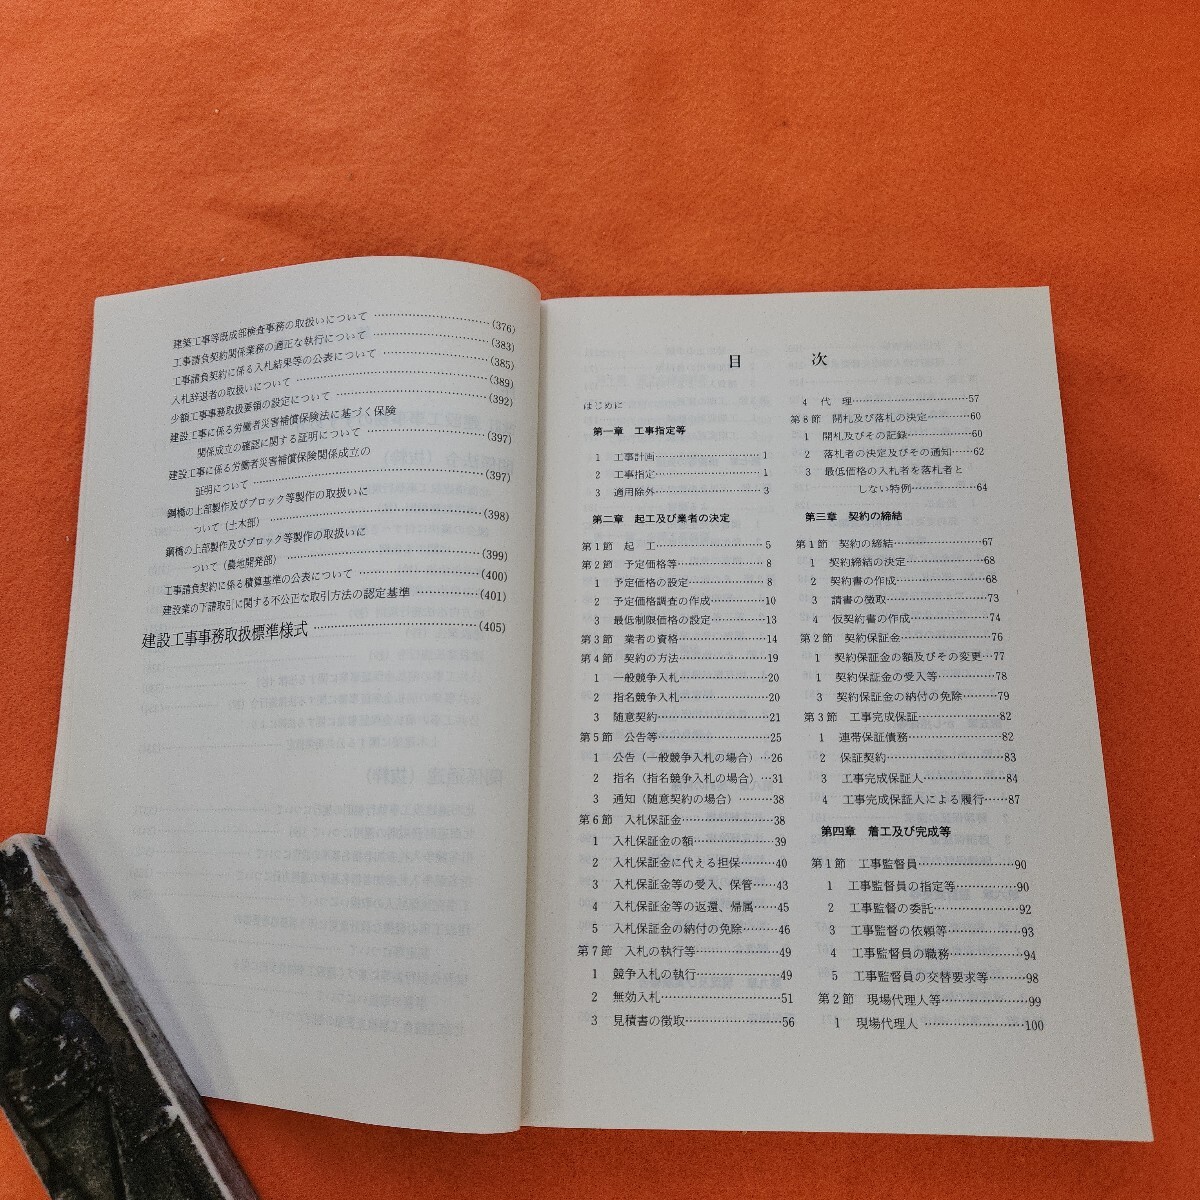 建築工事等既成部検査事務の取扱いについて……………(376)
工事請負契約関係業務の適正な執行について……………(383)
工事請負契約に係る入札結果等の公表について……………(385)
入札辞退者の取扱いについて……………(389)
少額工事事務取扱要領の設定について……………(392)
建設工事に係る労働者災害補償保険法に基づく保険
関係成立の確認に関する証明について……………(397)
建設工事に係る労働者災害補償保険関係成立の
証明について……………(397)
鋼橋の上部製作及びブロック等製作の取扱いに
ついて(土木部)……………(398)
鋼橋の上部製作及びブロック等製作の取扱いに
ついて(農地開発部)……………(399)
工事請負契約に係る積算基準の公表について……………(400)
建設業の下請取引に関する不公正な取引方法の認定基準……………(401)
建設工事事務取扱標準様式……………(405)
目 次
はじめに
第一章 工事指定等
1 工事計画……………1
2 工事指定……………1
3 適用除外……………3
第二章 起工及び業者の決定
第1節 起 工……………5
第2節 予定価格等……………8
1 予定価格の設定……………8
2 予定価格調書の作成……………10
3 最低制限価格の設定……………13
第3節 業者の資格……………14
第4節 契約の方法……………19
1 一般競争入札……………20
2 指名競争入札……………20
3 随意契約……………21
第5節 公告等……………25
1 公告(一般競争入札の場合)…26
2 指名(指名競争入札の場合)…31
3 通知(随意契約の場合)……38
第6節 入札保証金……………38
1 入札保証金の額……………39
2 入札保証金に代える担保……40
3 入札保証金等の受入、保管……43
4 入札保証金等の返還、帰属……45
5 入札保証金の納付の免除……46
第7節 入札の執行等……………49
1 競争入札の執行……………49
2 無効入札……………51
3 見積書の徴取……………56
4 代 理……………57
第8節 開札及び落札の決定……………60
1 開札及びその記録……………60
2 落札者の決定及びその通知……62
3 最低価格の入札者を落札者と
しない特例……………64
第三章 契約の締結
第1節 契約の締結……………67
1 契約締結の決定……………68
2 契約書の作成……………68
3 請書の徴取……………73
4 仮契約書の作成……………74
第2節 契約保証金……………76
1 契約保証金の額及びその変更…77
2 契約保証金の受入等……………78
3 契約保証金の納付の免除……79
第3節 工事完成保証……………82
1 連帯保証債務……………82
2 保証契約……………83
3 工事完成保証人……………84
4 工事完成保証人による履行……87
第四章 着工及び完成等
第1節 工事監督員……………90
1 工事監督員の指定等……………90
2 工事監督の委託……………92
3 工事監督の依頼等……………93
4 工事監督員の職務……………94
5 工事監督員の交替要求等……98
第2節 現場代理人等……………99
1 現場代理人……………100